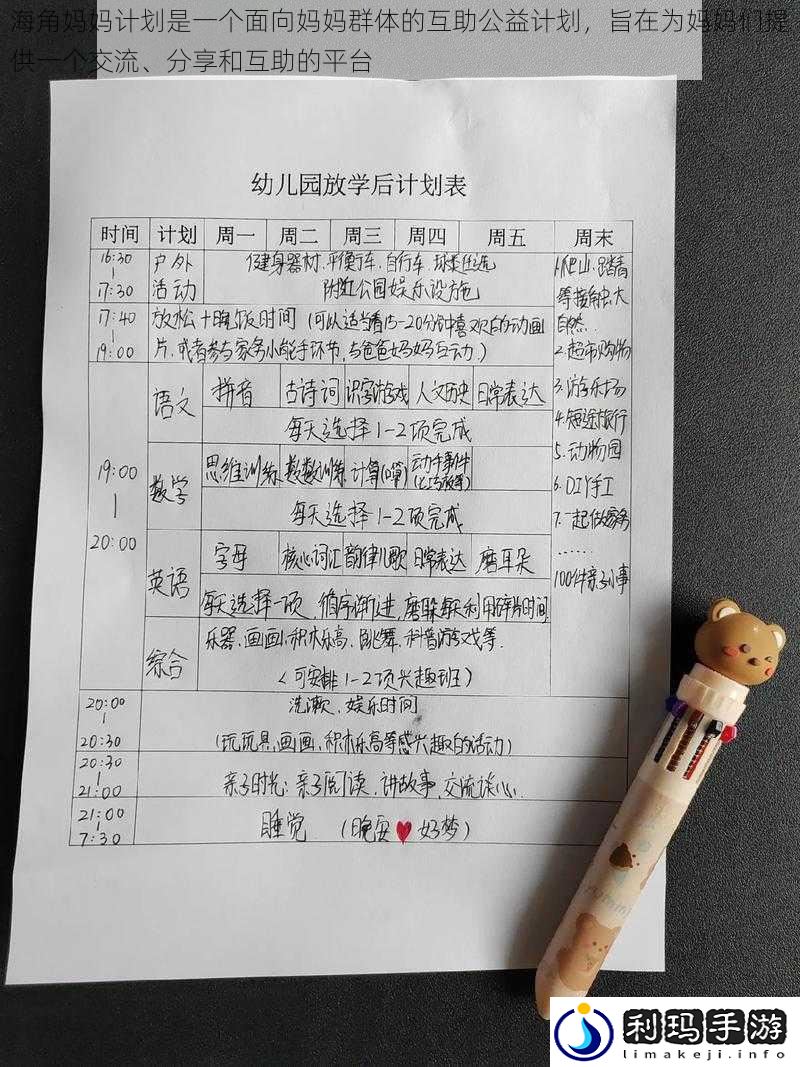 海角妈妈计划是一个面向妈妈群体的互助公益计划，旨在为妈妈们提
供一个交流、分享和互助的平台
幼儿园放学后计划表
时间 计划 周一 周二 周三 周四 周五 周末
16:30
|
17:30
户外
活动
健身器材、平衡车、自行车、球类任选
附近公园娱乐设施
17:40
|
19:00
放松+晚饭时间（可以适当看15-20分钟喜欢的动画
片，或者参与家务小能手环节，与爸爸妈妈互动。）
19:00
|
20:00
语文
拼音 古诗词 识字游戏 人文历史 日常表达
每天选择1-2项完成
数学
思维训练 数数训练 计算(口算) 动手事件
每天选择1-2项完成
英语
字母 核心词汇 韵律儿歌 日常表达 磨耳朵
每天选择一项，循序渐进，磨朵每天利用碎片时间
综合
乐器、画画、积木乐高、跳舞、科普游戏等.
<可安排1-2项兴趣班）
1.爬山、踏青
等接触大
自然...
2.超市购物
3.游乐场
4.短途旅行
5.动物园
6.DIY手工
7.一起做家务
......
100件亲子小事
20:00
|
20:30
洗漱、娱乐时间
(玩玩具,画画,积木乐高等感兴趣的活动)
20:30
|
21:00
亲子时光：亲子阅读、讲故事、交流谈心.
21:00
|
7:30
睡觉 (晚安♥好梦)
利玛手游
limakeji.info